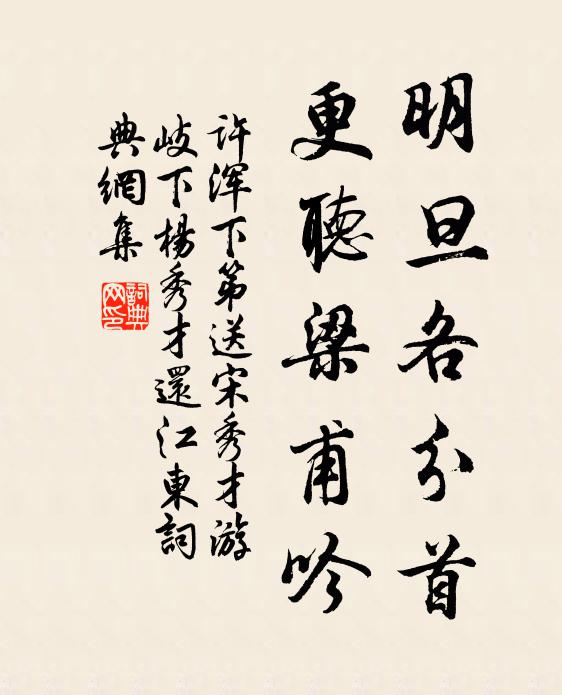 明旦各分首
更聽梁甫吟
许浑下第送宋秀才游
岐下楊秀才還江東詞
典網集
詞典
网印